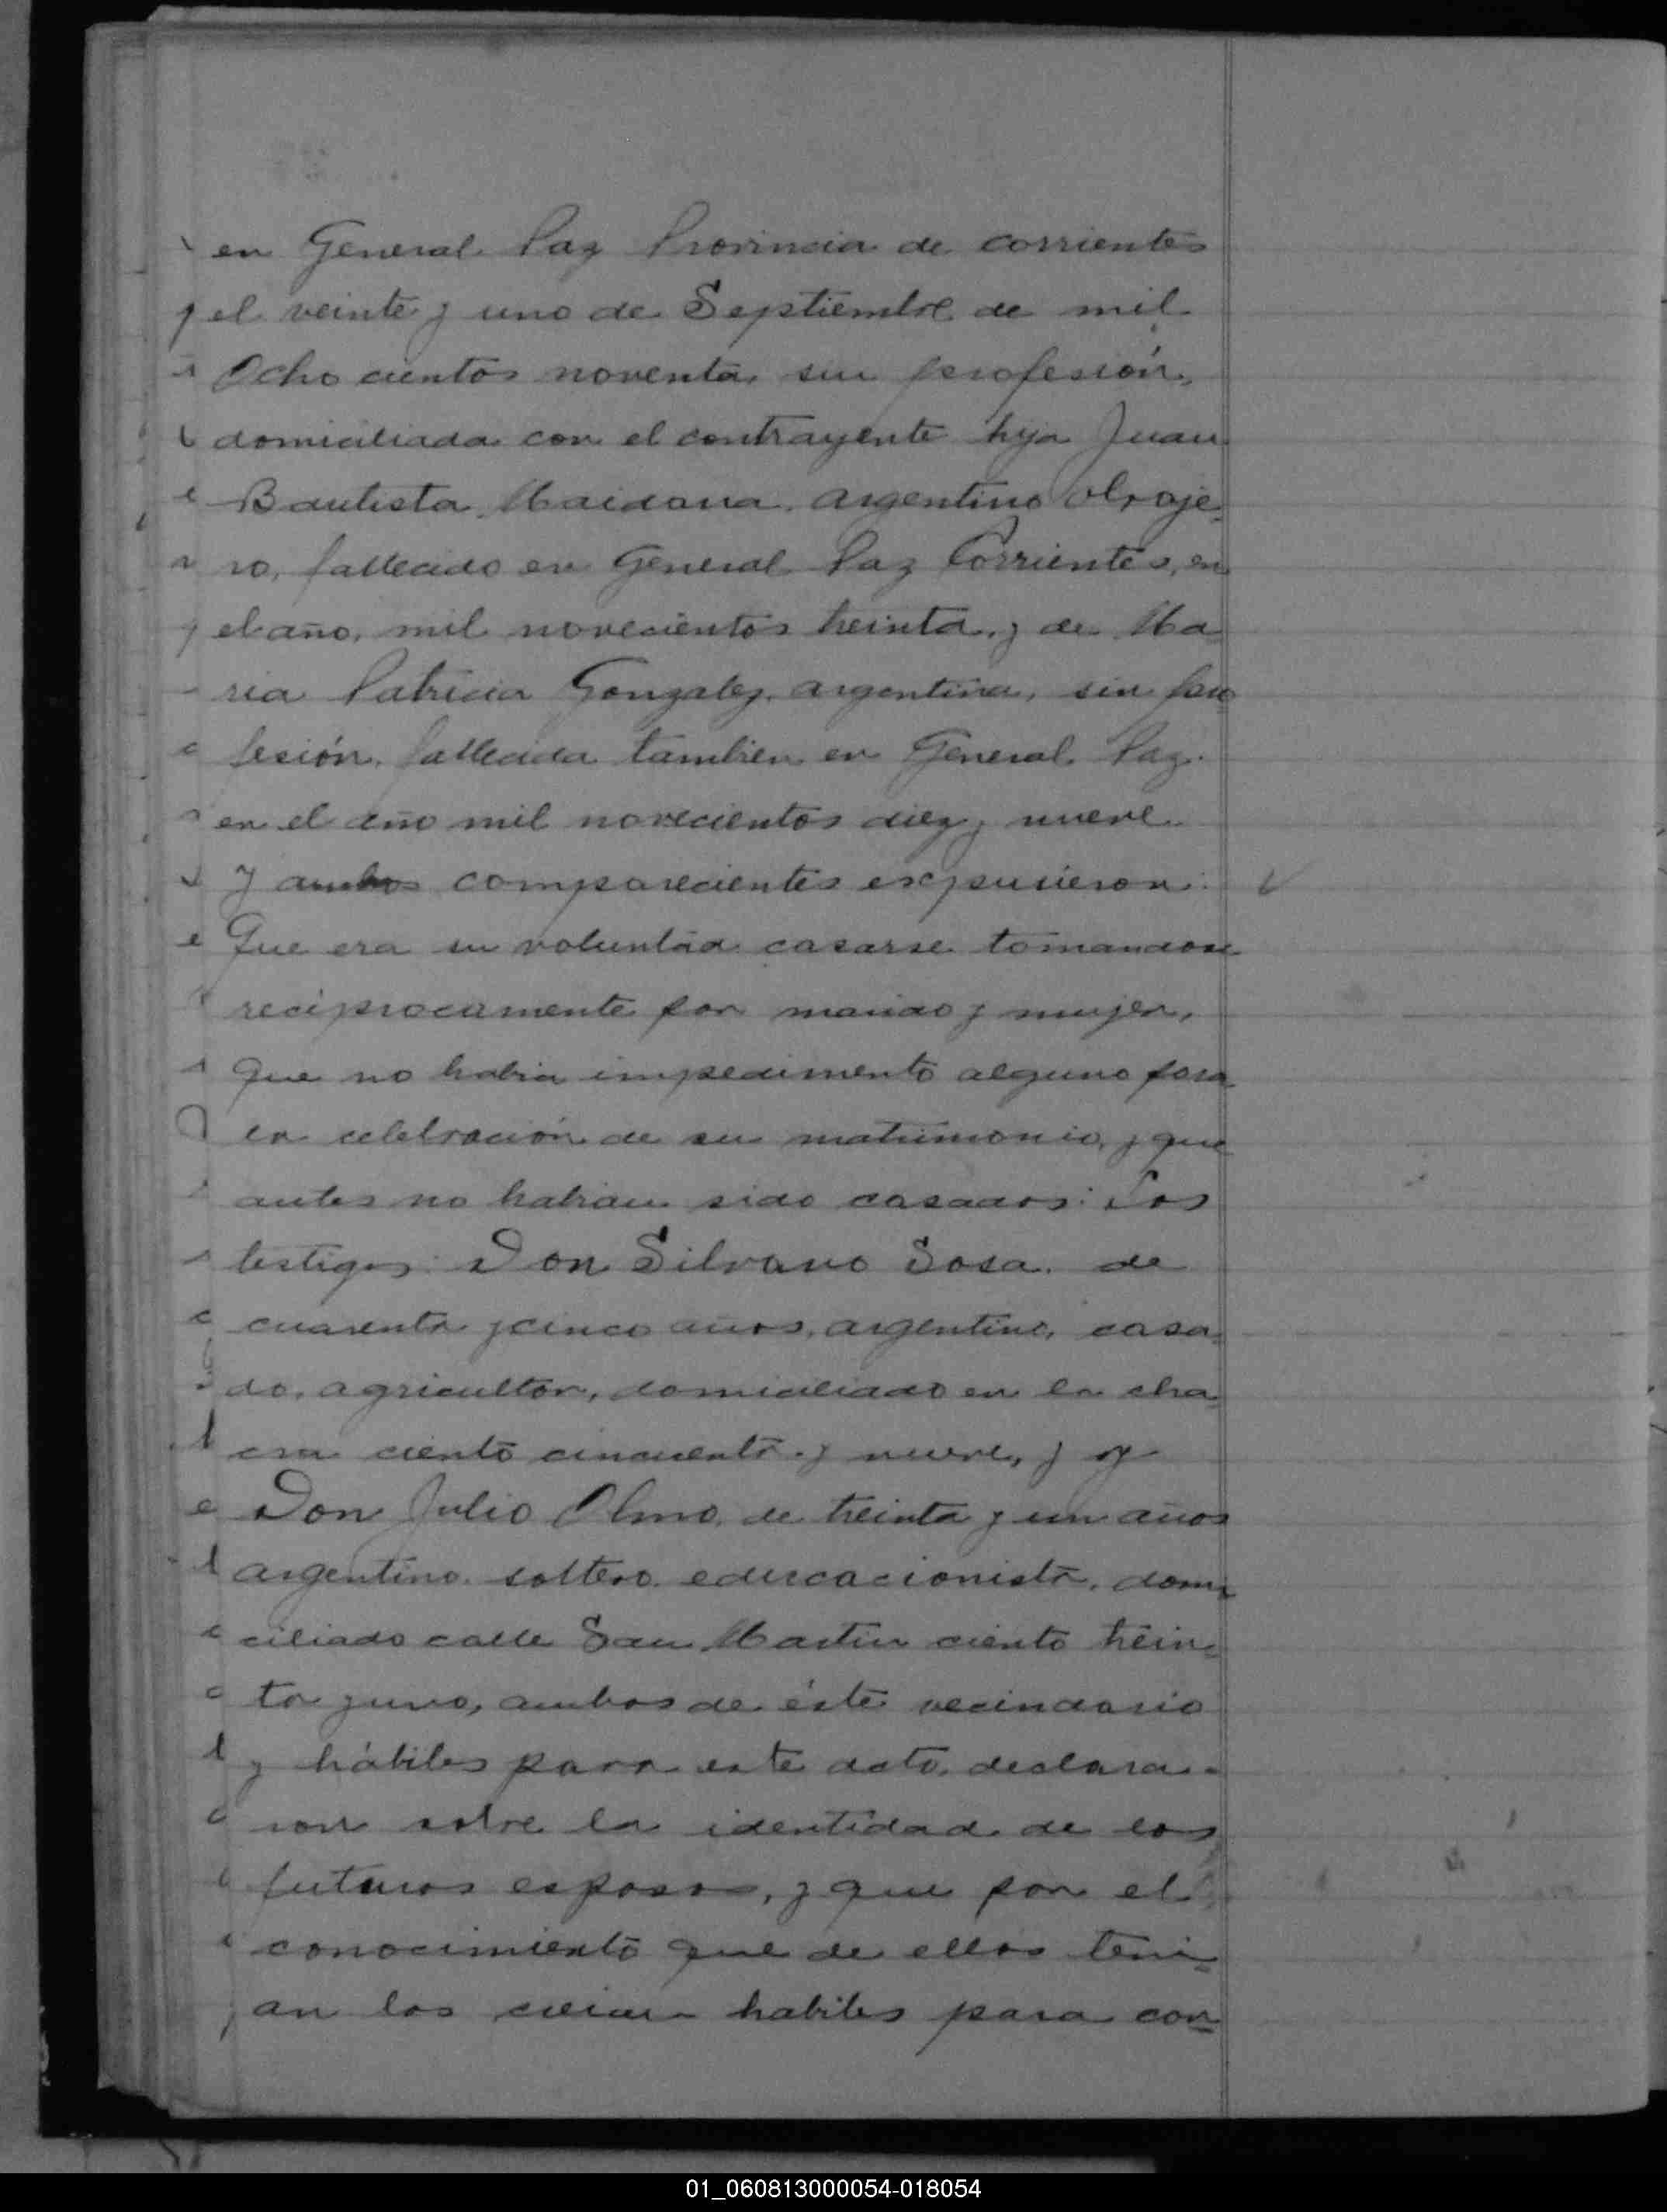 en General Paz Provincia de corrientes
y el veinte y uno de Septiembre de mil
Ocho cientos noventa, sin profesión,
domiciliada con el contrayente hija Juan
Bautista Maidana, argentino obraje-
ro, fallecido en General Paz Corrientes, en
el año, mil novecientos treinta, y de Ma
ria Patricia Gonzalez, argentina, sin pro
fesión, fallecida tambien en General Paz.
en el año mil novecientos diez y nueve
y ambos comparecientes expusieron:
Que era su voluntad casarse tomandose
reciprocamente por marido y mujer,
que no habia impedimento alguno para
la celebración de su matrimonio, y que
antes no habian sido casados: Los
testigos: Don Silvano Sosa, de
cuarenta y cinco años, argentino, casa-
do, agricultor, domiciliado en la cha-
cra ciento cincuenta y nueve, y
Don Julio Olmo, de treinta y un años
argentino, soltero, educacionista, domi
ciliado calle San Martin ciento trein-
ta y uno, ambos de éste vecindario
y hábiles para este acto, declara-
ron sobre la identidad de los
futuros esposos, y que por el
conocimiento que de ellos teni-
an los creian habiles para con-
01_060813000054-018054